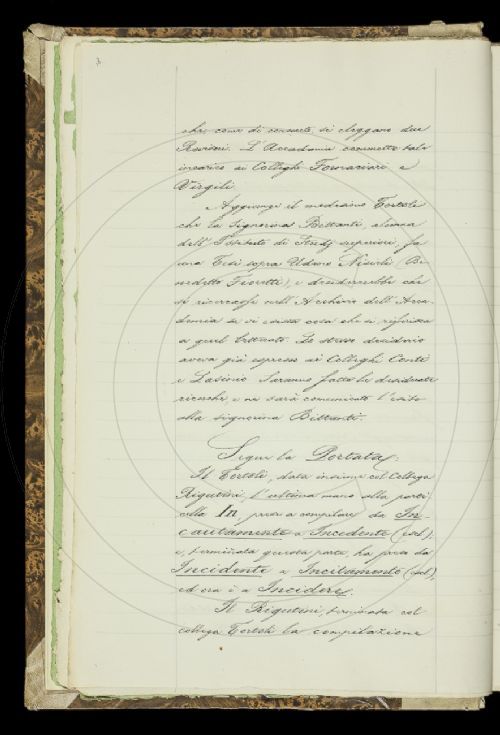 che come di consueto si eleggano due
Revisori. L'Accademia commette tale
incarico ai Colleghi Fornaciari e
Virgili.
Aggiunge il medesimo Tortoli
che la Signorina Bettanti, alunna
dell'Istituto di Studj superiori, fa
una Tesi sopra Udeno Nisieli (Be-
nedetto Fioretti), e desidererebbe che
si ricercasse nell'Archivio dell'Acca-
demia se vi esiste cosa che si riferisca
a quel letterato. Lo stesso desiderio
aveva già espresso ai Colleghi Conti
e Lasinio. Saranno fatte le desiderate
ricerche, e ne sarà comunicato l'esito
alla signorina Bettanti.
Segue la Portata.
Il Tortoli, data insieme col Collega
Rigutini, l'ultima mano alla parti-
cella In, prese a compilare da In-
cautamente a Incedente (escl.);
e, terminata questa parte, ha preso da
Incidente a Incitamento (escl.),
ed ora è a Incidere.
Il Rigutini, terminata col
collega Tortoli la compilazione